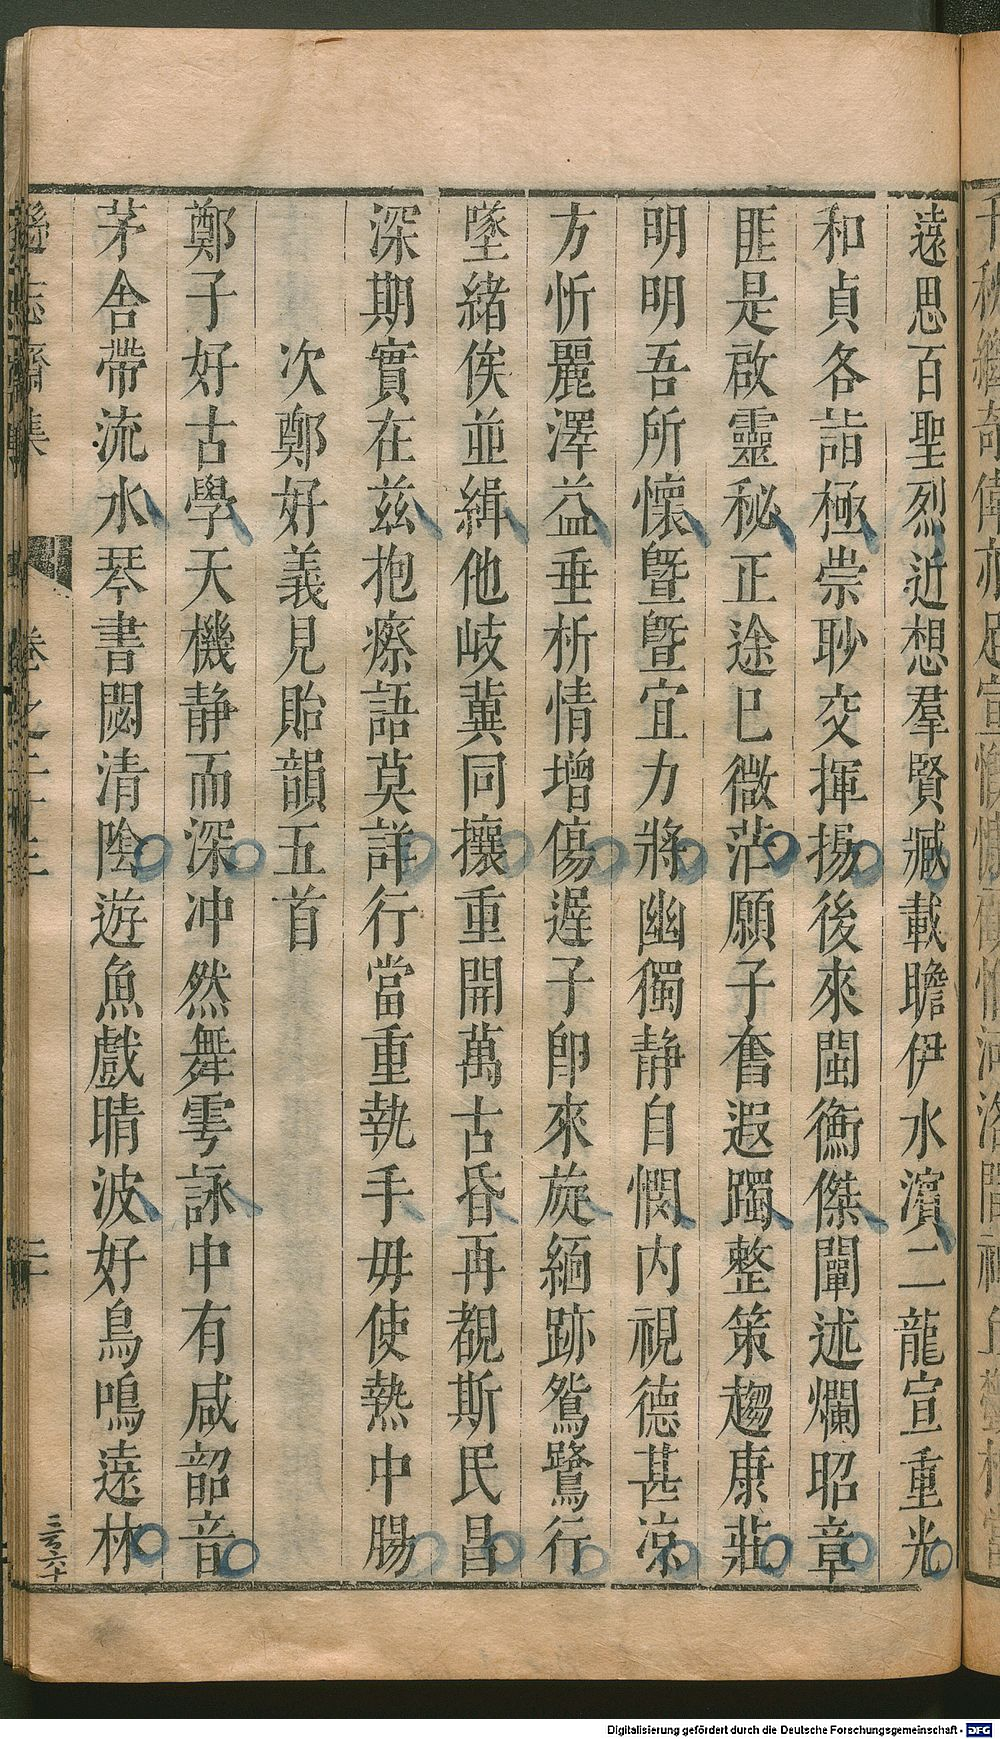 遠思百聖烈近想羣賢臧載瞻伊水濱二龍宣重光
和貞各詣極崇聁交揮揚後來閩衡傑闡述爛昭章
匪是啟靈秘正途巳微茫願子奮遐躅整策趨康莊
明明吾所懷曁曁宜力將幽獨静自憫内視德甚凉
方忻麗澤益垂析情增傷遲子卽來旋緬跡鴛鷺行
墜緒俟並緝他岐冀同攘重開萬古昏再覩斯民昌
深期實在兹抱瘵語莫詳行當重執手毋使熱中腸
次鄭好義見貽韻五首
鄭子好古學天機静而深冲然舞雩詠中有咸韶音
茅舍帶流水琴書閟清陰遊魚戲晴波好鳥鳴遠林
遜志齋集
卷之二十三
三
三百六十
Digitalisierung gefördert durch die Deutsche Forschungsgemeinschaft - DFG